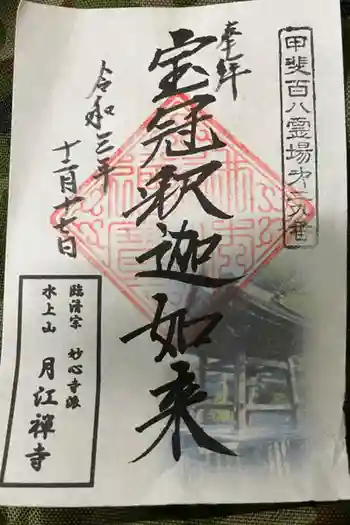 甲斐百八霊場
奉拝
宝冠釈迦如来
令和三年
十二月十七日
臨済宗 妙心寺派
水上山 月江禅寺